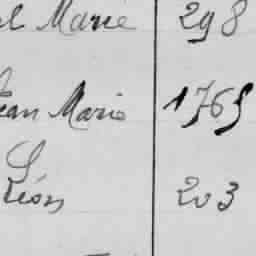 Marie 298
Jean Marie 1765
Léon 203